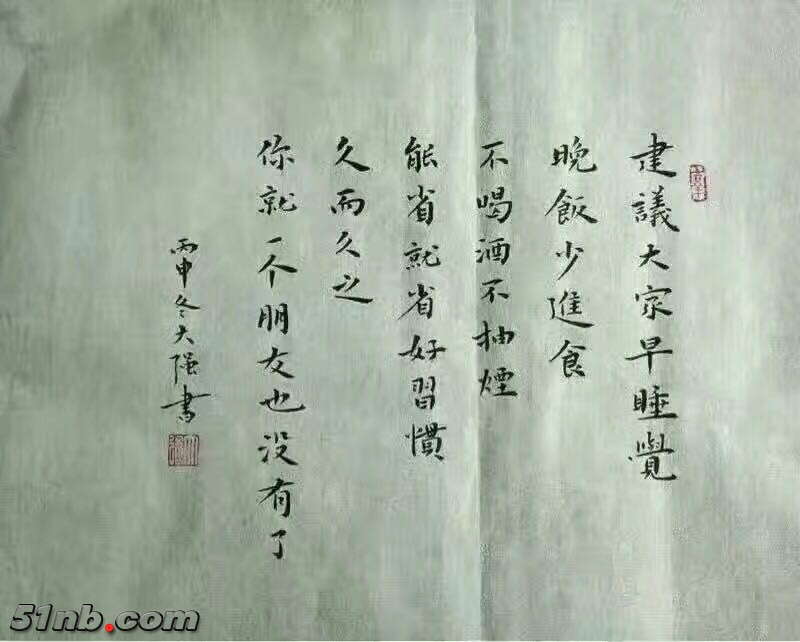 建議大家早睡覺
晚飯少進食
不喝酒不抽煙
能省就省好習慣
久而久之
你就一个朋友也没有了
丙申冬大强書
51nb.com